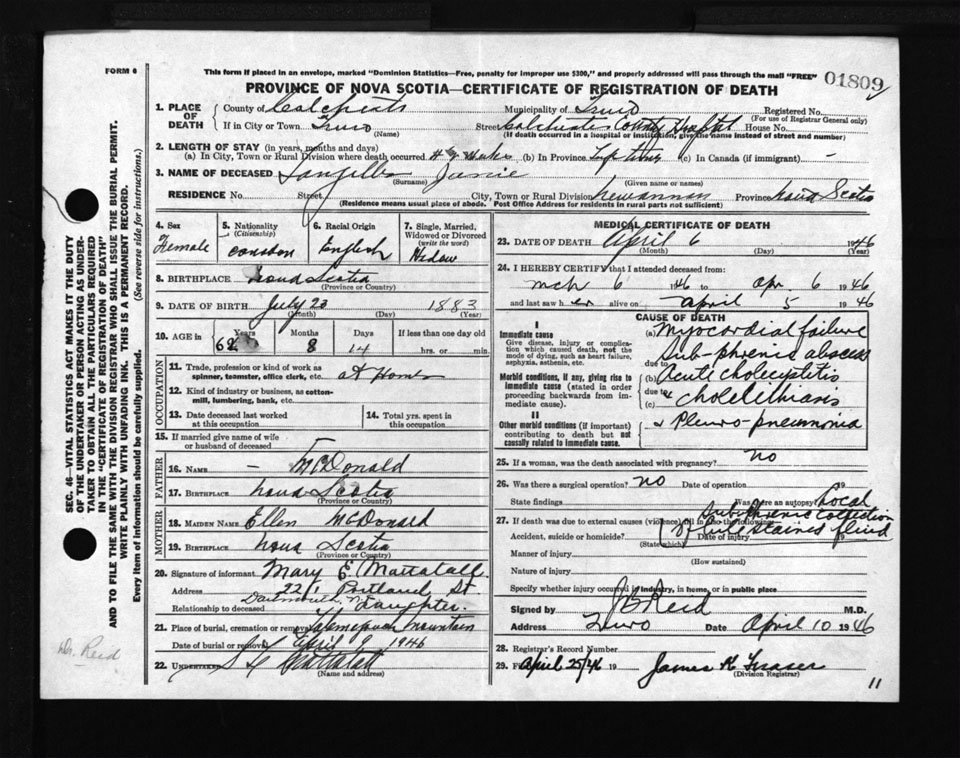 FORM 6
This form if placed in an envelope, marked "Dominion Statistics—Free, penalty for improper use $300," and properly addressed will pass through the mail "FREE"
01809
PROVINCE OF NOVA SCOTIA—CERTIFICATE OF REGISTRATION OF DEATH
1. PLACE OF DEATH
County of Municipality of Truro Registered No.
(For use of Registrar General only)
If in City or Town Truro (Name) Street Colchester County Hospital House No.
(If death occurred in a hospital or institution, give the name instead of street and number)
2. LENGTH OF STAY (in years, months and days)
(a) In City, Town or Rural Division where death occurred (b) In Province (c) In Canada (if immigrant) -
3. NAME OF DECEASED Janie
(Surname) (Given name or names)
RESIDENCE No. Street City, Town or Rural Division Newannan Province Nova Scotia
(Residence means usual place of abode. Post Office Address for residents in rural parts not sufficient)
4. Sex Female
5. Nationality (Citizenship)
6. Racial Origin English
7. Single, Married, Widowed or Divorced (write the word)
8. BIRTHPLACE Nova Scotia
(Province or Country)
9. DATE OF BIRTH July 23 1883
(Month) (Day) (Year)
10. AGE in Years 62 Months 8 Days 14 If less than one day hrs. or min.
OCCUPATION
11. Trade, profession or kind of work as spinner, teamster, office clerk, etc. at Home
12. Kind of industry or business, as cotton-mill, lumbering, bank, etc.
13. Date deceased last worked at this occupation
14. Total yrs. spent in this occupation
15. If married give name of wife or husband of deceased
FATHER
16. NAME - McDonald
17. BIRTHPLACE Nova Scotia
(Province or Country)
MOTHER
18. MAIDEN NAME Ellen McDonald
19. BIRTHPLACE Nova Scotia
(Province or Country)
20. Signature of informant Mary E Mattatall
Address 221 Portland St.
Dartmouth N.S.
Relationship to deceased Daughter.
21. Place of burial, cremation or removal Mountain
Date of burial or removal April 9 1946
22. UNDERTAKER Mattatall
(Name and address)
MEDICAL CERTIFICATE OF DEATH
23. DATE OF DEATH April 6 1946
(Month) (Day) (Year)
24. I HEREBY CERTIFY that I attended deceased from:
mch 6 1946 to Apr. 6 1946
and last saw her alive on April 5 1946
CAUSE OF DEATH
I
Immediate cause
Give disease, injury or complication which caused death, not the mode of dying, such as heart failure, asphyxia, asthenia, etc.
(a) Myocardial failure
due to Sub-phrenic abscess
Morbid conditions, if any, giving rise to immediate cause (stated in order proceeding backwards from immediate cause).
(b) Acute cholecystitis
due to &
(c) cholelithiasis
II
Other morbid conditions (if important) contributing to death but not causally related to immediate cause.
& Pleuro-pneumonia
25. If a woman, was the death associated with pregnancy? no
26. Was there a surgical operation? no Date of operation 19
State findings Was there an autopsy? Local
Subphrenic collection
27. If death was due to external causes (violence) fill in also the following:
of bile stained fluid
Accident, suicide or homicide? Date of injury 19
(State which)
Manner of injury
(How sustained)
Nature of injury
Specify whether injury occurred in industry, in home, or in public place
Signed by J B Reid M.D.
Address Truro Date April 10 1946
28. Registrar's Record Number
29. Filed April 25/46 19 James K Fraser
(Division Registrar)
11
Dr. Reid
SEC. 46—VITAL STATISTICS ACT MAKES IT THE DUTY OF THE UNDERTAKER OR PERSON ACTING AS UNDERTAKER TO OBTAIN ALL THE PARTICULARS REQUIRED IN THE "CERTIFICATE OF REGISTRATION OF DEATH" AND TO FILE THE SAME WITH THE DIVISION REGISTRAR WHO SHALL ISSUE THE BURIAL PERMIT.
WRITE PLAINLY WITH UNFADING INK. THIS IS A PERMANENT RECORD.
Every item of information should be carefully supplied. (See reverse side for instructions.)